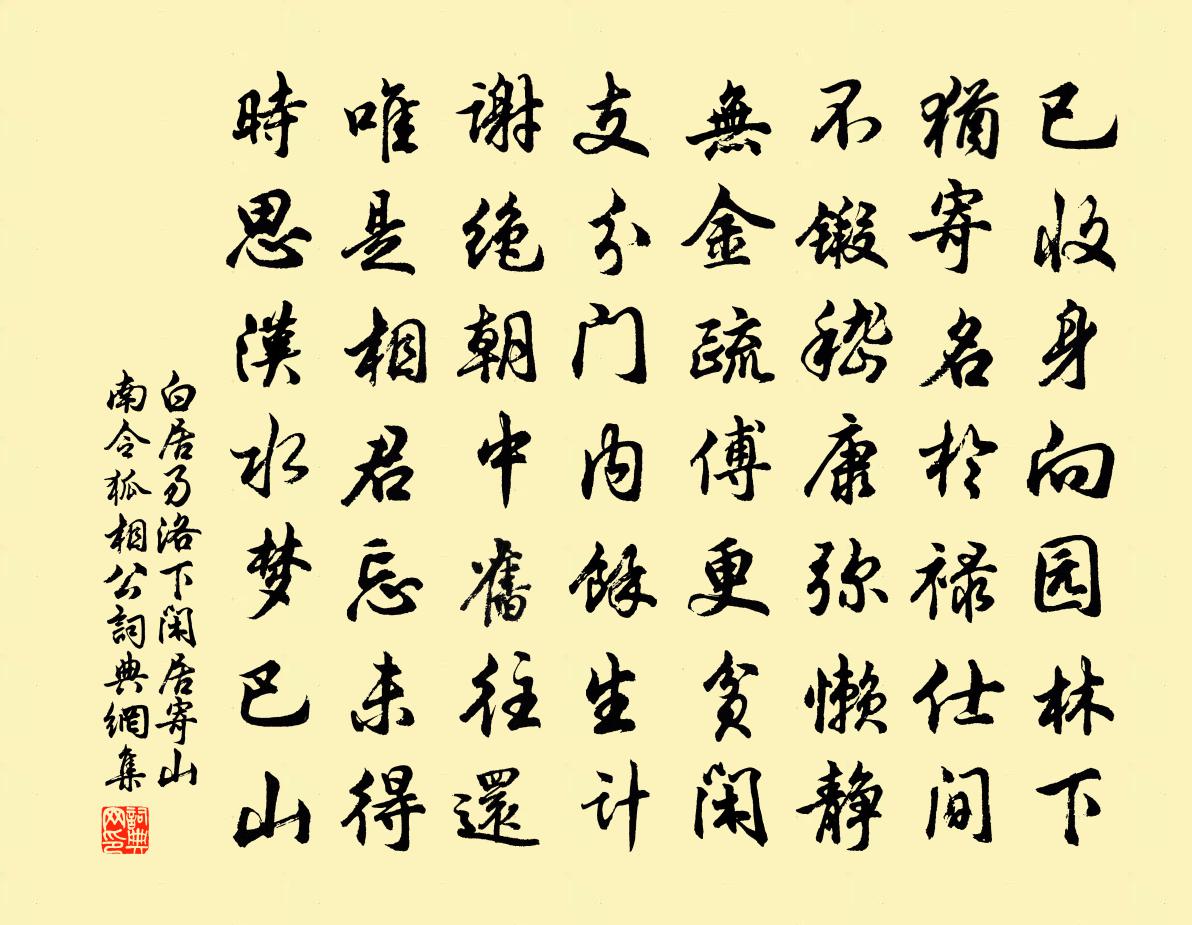 已收身向园林下
猶寄名於禄仕间
不鍛嵇康弥懒静
無金疏傅更贫闲
支分门内餘生计
谢绝朝中舊往還
唯是相君忘未得
時思漢水梦巴山
白居易洛下闲居寄山
南令狐相公詞典網集
詞典
网印